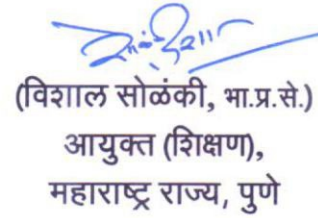 (विशाल सोळंकी, भा.प्र.से.)
आयुक्त (शिक्षण),
महाराष्ट्र राज्य, पुणे